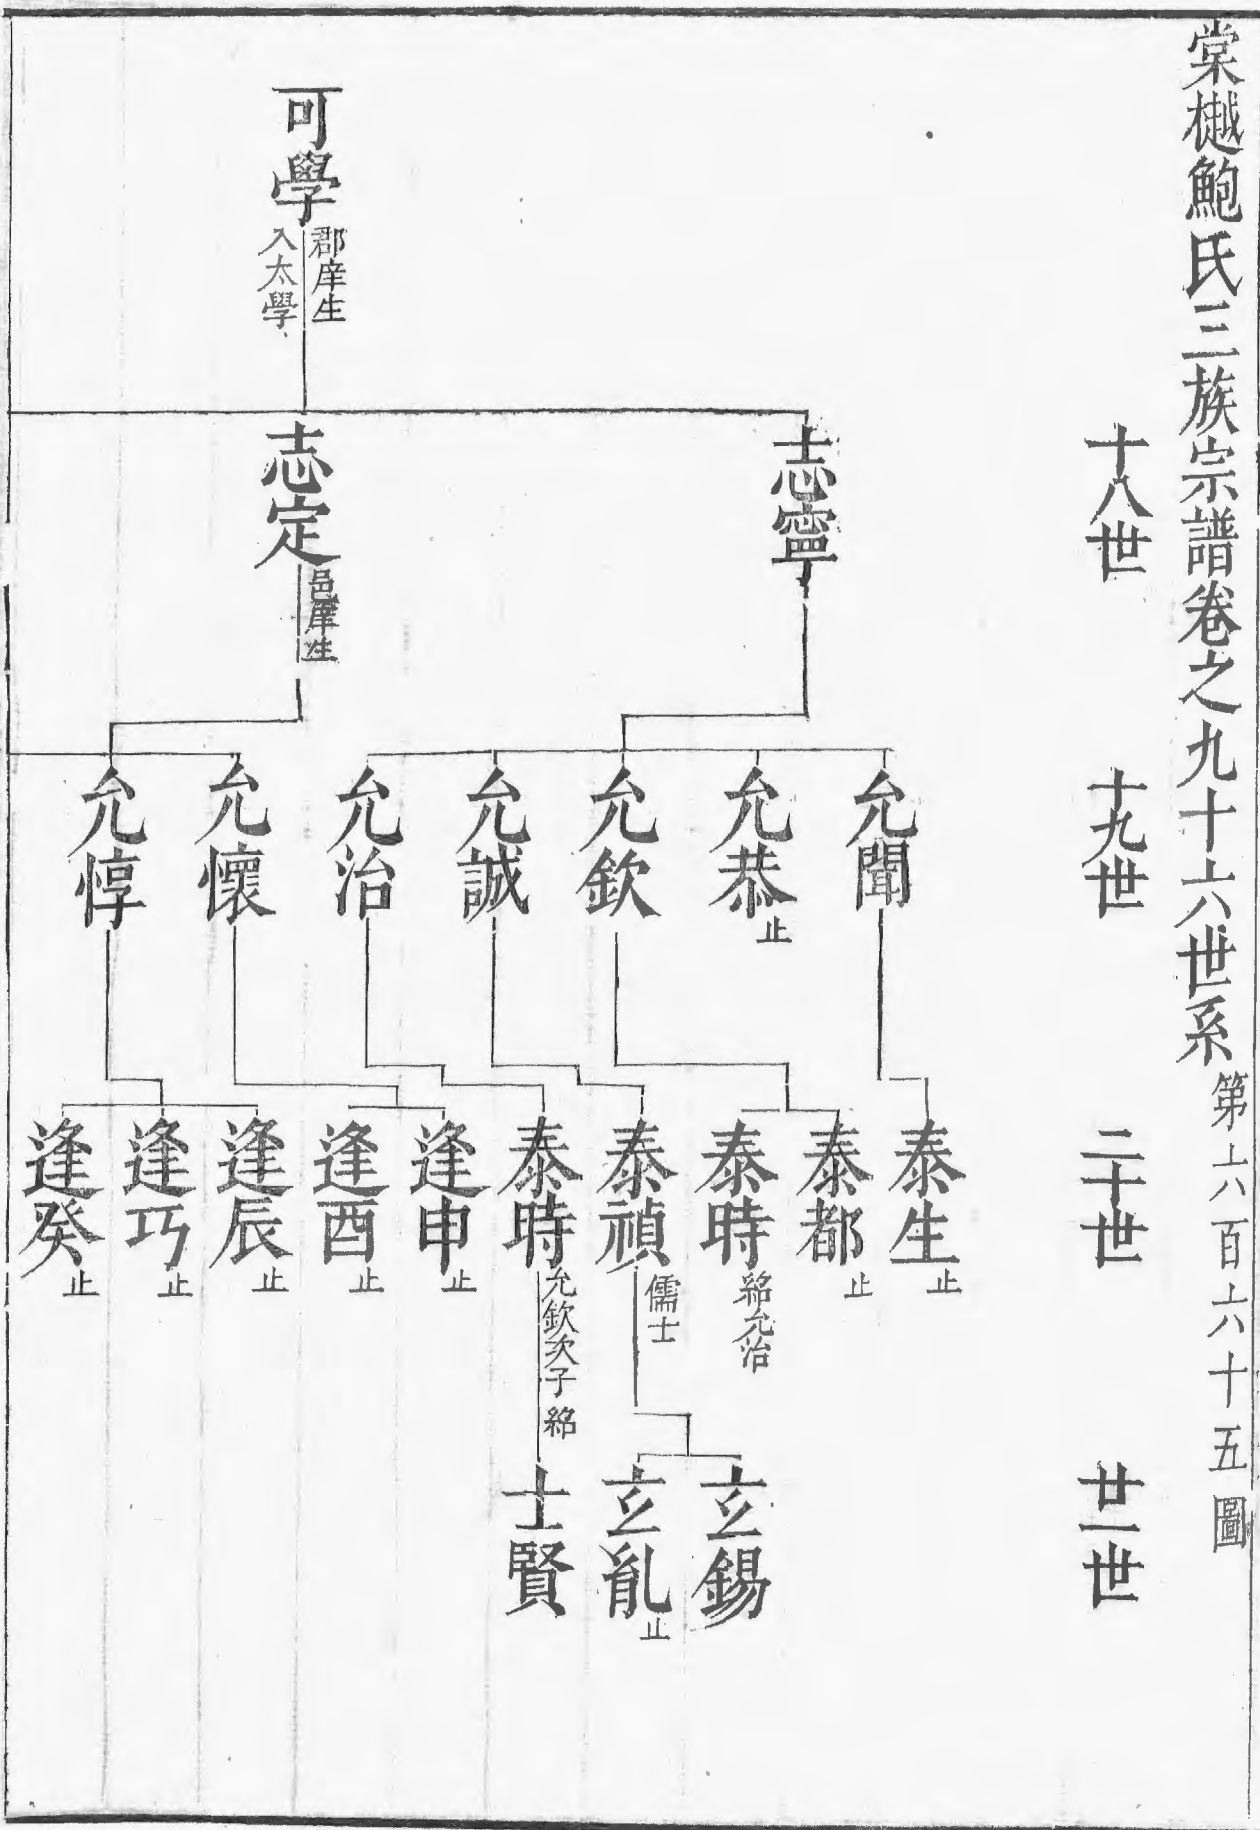 棠樾鮑氏三族宗譜卷之九十六世系 第六百六十五圖
十八世
十九世
二十世
廿一世
可學 郡庠生
入太學
志寧
志定 邑庠生
允聞
允恭 止
允欽
允誠
允治
允懷
允惇
泰生 止
泰都 止
泰時 紹允治
泰禎 儒士
泰時 允欽次子紹
逢申 止
逢酉 止
逢辰 止
逢巧 止
逢癸 止
玄錫
玄胤 止
士賢